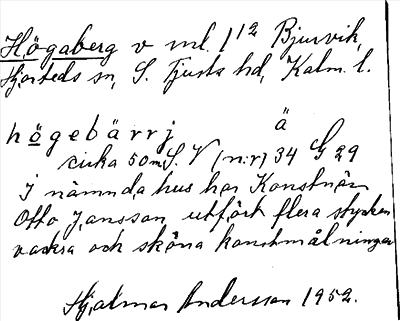 Högaberg v ml. 1¹² Bjursvik,
Hjorteds sn, S. Tjusts hd, Kalm. l.
högebärrj ä
cirka 50 m S. V (n:r) 34 G 29
I nämnda hus har Konstnären
Otto Jansson utfört flera stycken
vackra och sköna konstmålningar
Hjalmar Andersson 1952.